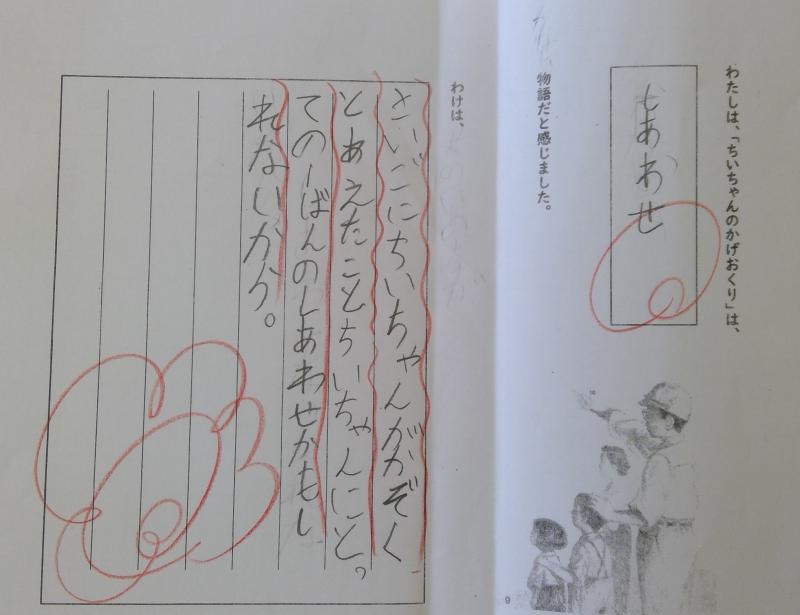 わたしは、「ちいちゃんのかげおくり」は、
しあわせ
物語だと感じました。
わけは、
さいごにちいちゃんがかぞく
とあえたことちいちゃんにと。
てのーばんのしあわせかもし
れないから。
9